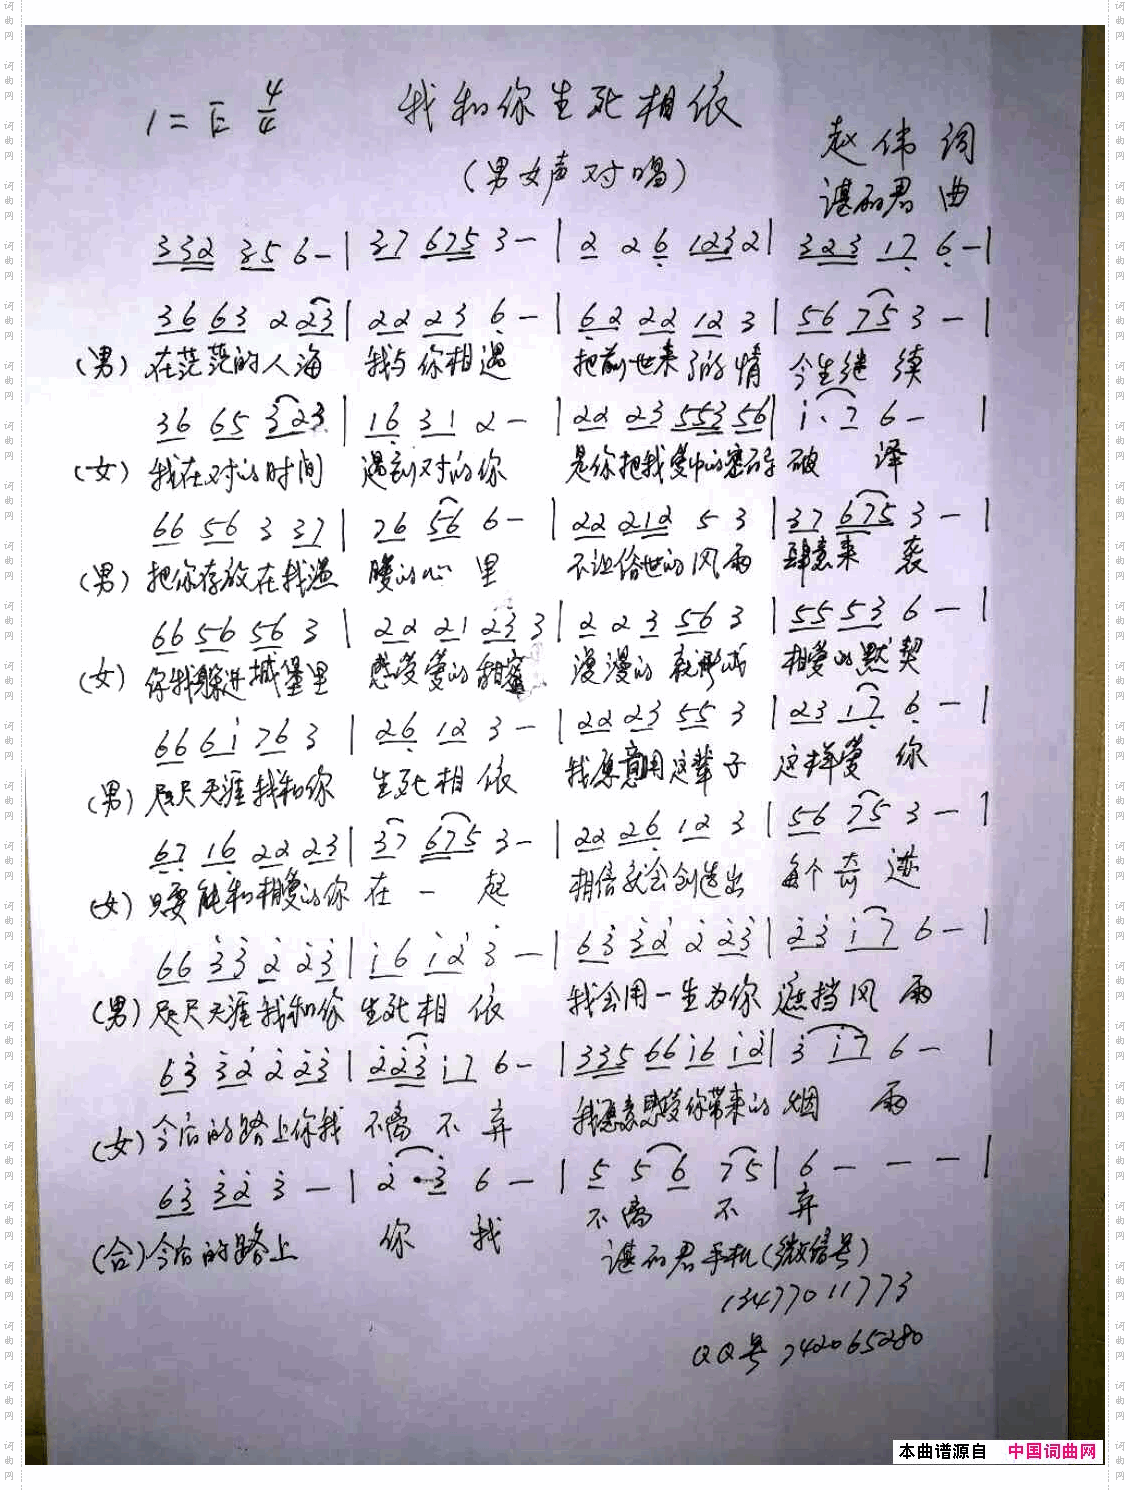 我和你生死相依
1=E 4/4
(男女声对唱)
赵伟 词
谌丽君 曲
332 35 6 - | 37 675 3 - | 2 2 6 123 2 | 323 17 6 - |
36 63 2 23 | 22 23 6 - | 62 22 12 3 | 56 75 3 - |
(男) 在茫茫的人海 我与你相遇 把前世未了的情 今生继续
36 65 323 | 16 31 2 - | 22 23 553 56 | i·7 6 - |
(女) 我在对的时间 遇到对的你 是你把我爱中的密码 破译
66 56 3 37 | 76 56 6 - | 22 212 5 3 | 37 675 3 - |
(男) 把你存放在我温 暖的心里 不让俗世的风雨 肆意来袭
66 56 56 3 | 22 21 23 3 | 2 2 3 56 3 | 55 53 6 - |
(女) 你我躲进城堡里 感受爱的甜蜜 漫漫的就形成 相爱的默契
66 6i 76 3 | 26 12 3 - | 22 23 55 3 | 23 17 6 - |
(男) 咫尺天涯我和你 生死相依 我愿意用这辈子 这样爱你
67 16 22 23 | 37 675 3 - | 22 26 12 3 | 56 75 3 - |
(女) 只要能和相爱的你 在一起 相信就会创造出 每个奇迹
66 33 2 23 | i6 i2 3 - | 63 32 2 23 | 23 i7 6 - |
(男) 咫尺天涯我和你 生死相依 我会用一生为你 遮挡风雨
63 32 2 23 | 223 i7 6 - | 335 66 i6 i2 | 3 i7 6 - |
(女) 今后的路上你我 不离不弃 我愿意感受你带来的 烟雨
63 32 3 - | 2·3 6 - | 5 5 6 75 | 6 - - - |
(合) 今后的路上 你我 不离不弃
谌丽君手机(微信号)
13477011773
QQ号 742065280
本曲谱源自 中国词曲网